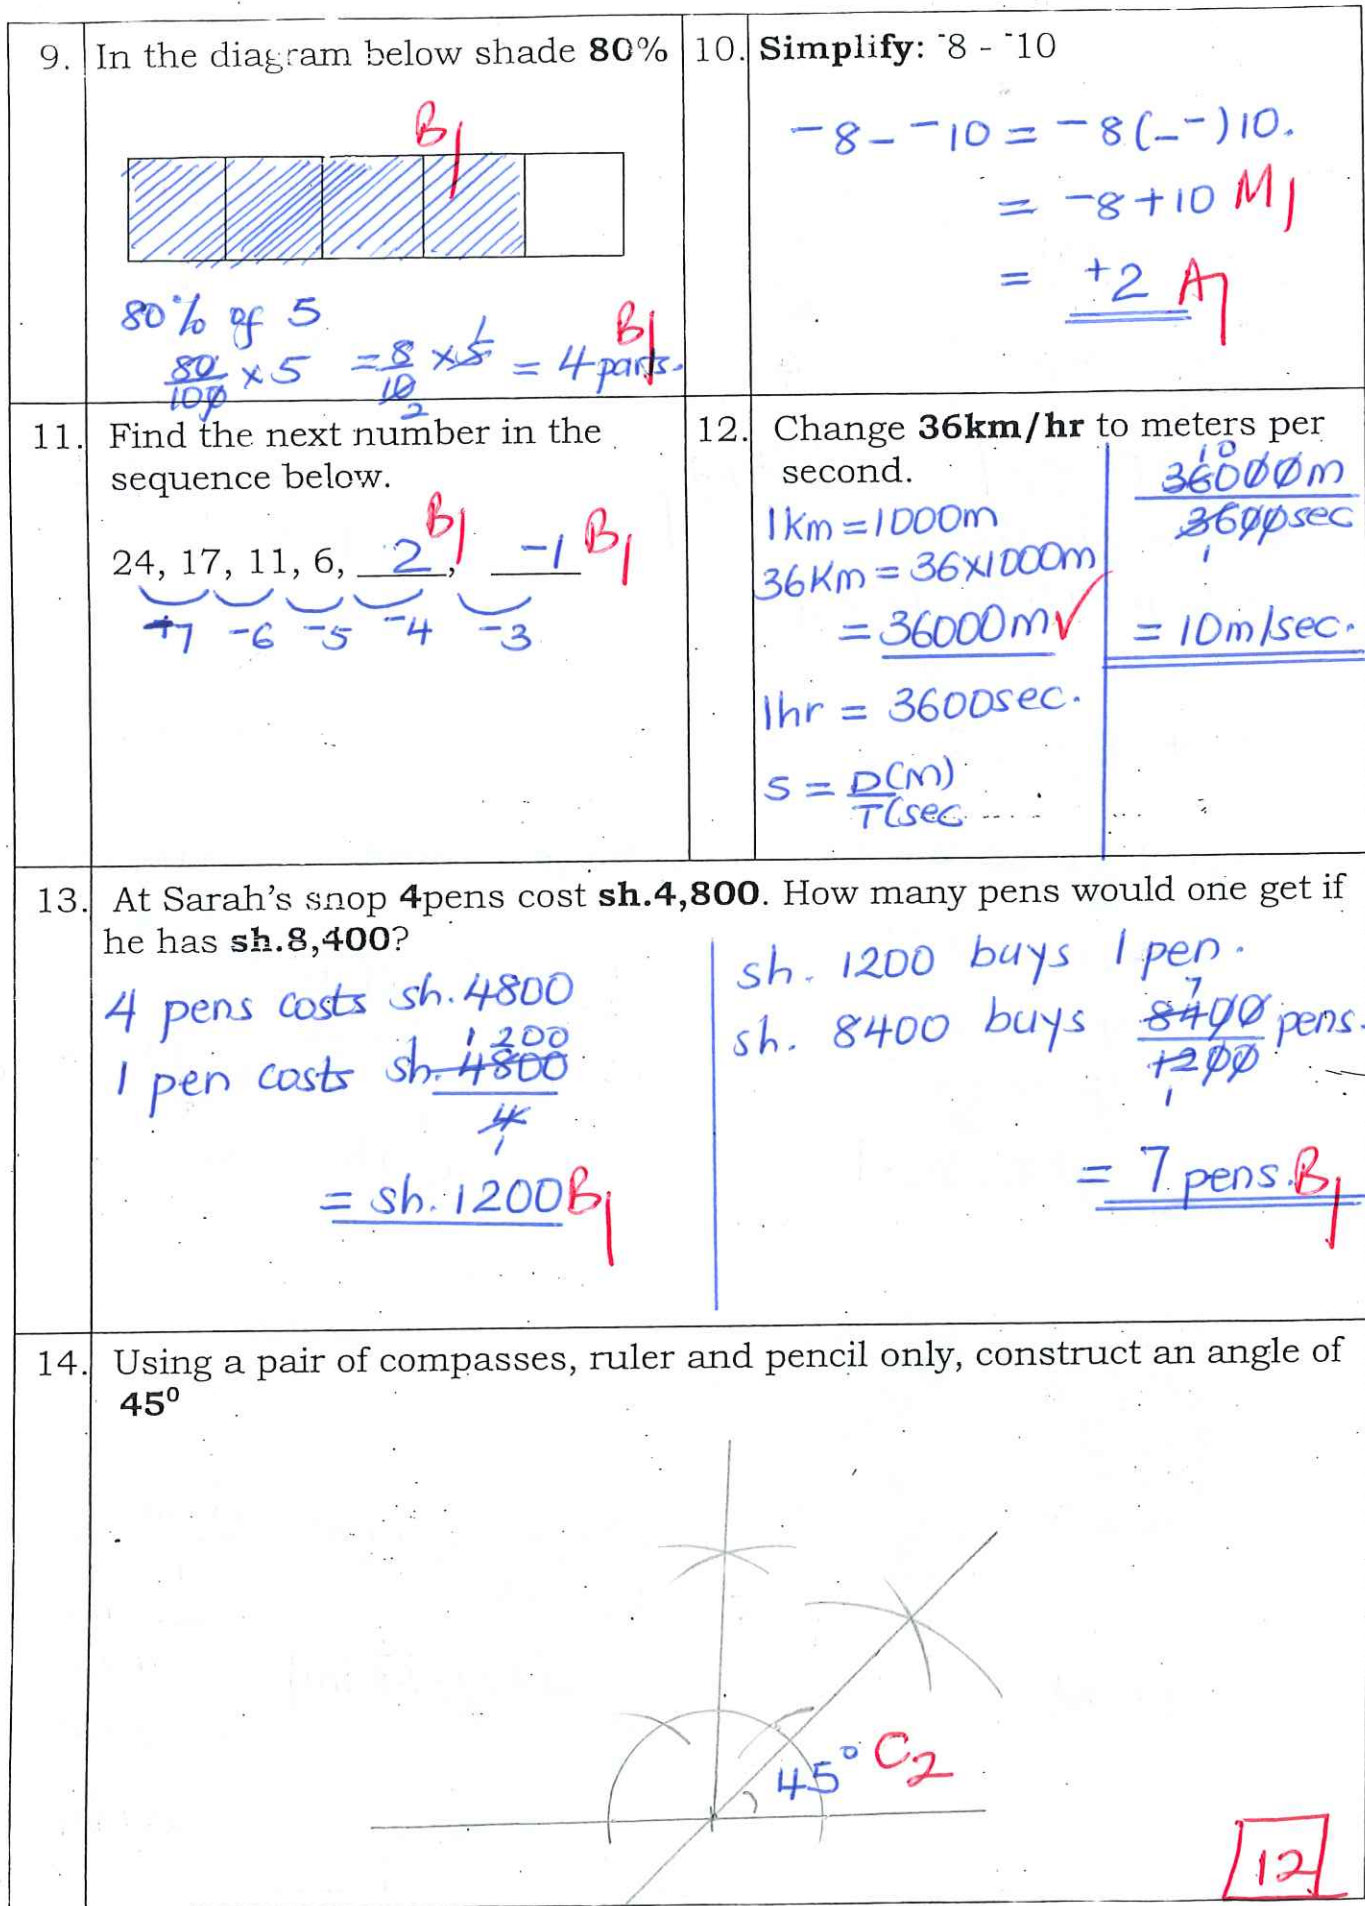 9. In the diagram below shade 80%
B1
80% of 5
80/100 × 5 = 8/10 × 5 = 4 parts. B1
1
2
10. Simplify: ⁻8 - ⁻10
⁻8 - ⁻10 = ⁻8(-⁻)10.
= ⁻8+10 M1
= ⁺2 A1
11. Find the next number in the
sequence below.
24, 17, 11, 6, 2 B1, -1 B1
-7 -6 -5 -4 -3
12. Change 36km/hr to meters per
second.
1km = 1000m
36Km = 36×1000m
= 36000m ✓
1hr = 3600sec.
S = D(m)
T(sec
10
36000m
3600sec
1
= 10m/sec.
13. At Sarah's snop 4pens cost sh.4,800. How many pens would one get if
he has sh.8,400?
4 pens costs sh. 4800
1200
1 pen costs sh. 4800
4
1
= sh. 1200 B1
sh. 1200 buys 1 pen.
7
sh. 8400 buys 8400 pens.
1200
1
= 7 pens. B1
14. Using a pair of compasses, ruler and pencil only, construct an angle of
45⁰
45° C2
12